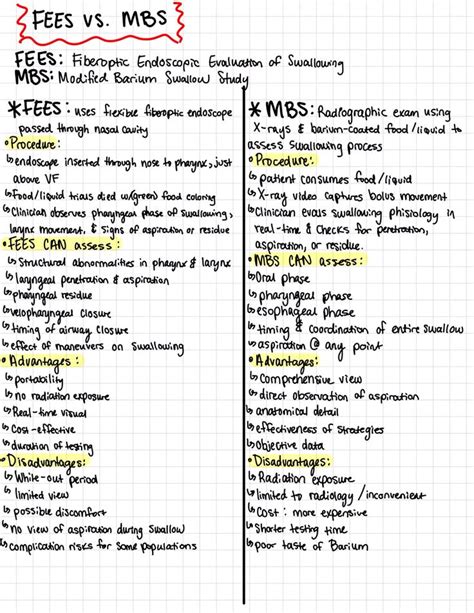 FEES VS. MBS
FEES: Fiberoptic Endoscopic Evaluation of Swallowing
MBS: Modified Barium Swallow Study
*FEES: uses flexible fiberoptic endoscope
passed through nasal cavity
Procedure:
endoscope inserted through nose to pharynx, just
above VF
Food/liquid trials died w/green) food coloring
Clinician observes pharyngeal phase of swallowing,
larynx movement, & signs of aspiration or residue
FEES CAN assess:
Structural abnormalities in pharynx & larynx
laryngeal penetration & aspiration
pharyngeal residue
velopharyngeal closure
timing of airway closure
effect of maneuvers on swallowing
Advantages:
portability
no radiation exposure
Real-time visual
Cost-effective
duration of testing
Disadvantages:
White-out period
limited view
possible discomfort
no view of aspiration during swallow
complication risks for some populations
*MBS: Radiographic exam using
X-rays & barium-coated food/liquid to
assess swallowing process
Procedure:
patient consumes food/liquid
X-ray video captures bolus movement
Clinician evals swallowing phisiology in
real-time & checks for penetration,
aspiration, or residue.
MBS CAN assess:
Oral phase
pharyngeal phase
esophageal phase
timing & coordination of entire swallow
aspiration @ any point
Advantages:
Comprehensive view
direct observation of aspiration
anatomical detail
effectiveness of strategies
Objective data
Disadvantages:
Radiation exposure
limited to radiology / inconvenient
Cost: more expensive
Shorter testing time
poor taste of Barium